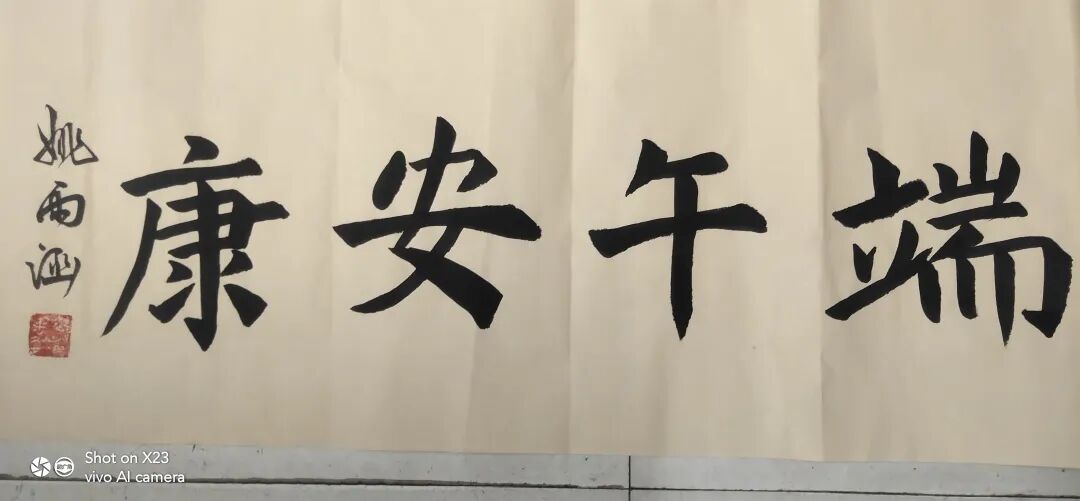 端午安康
姚雨涵
Shot on X23
vivo AI camera